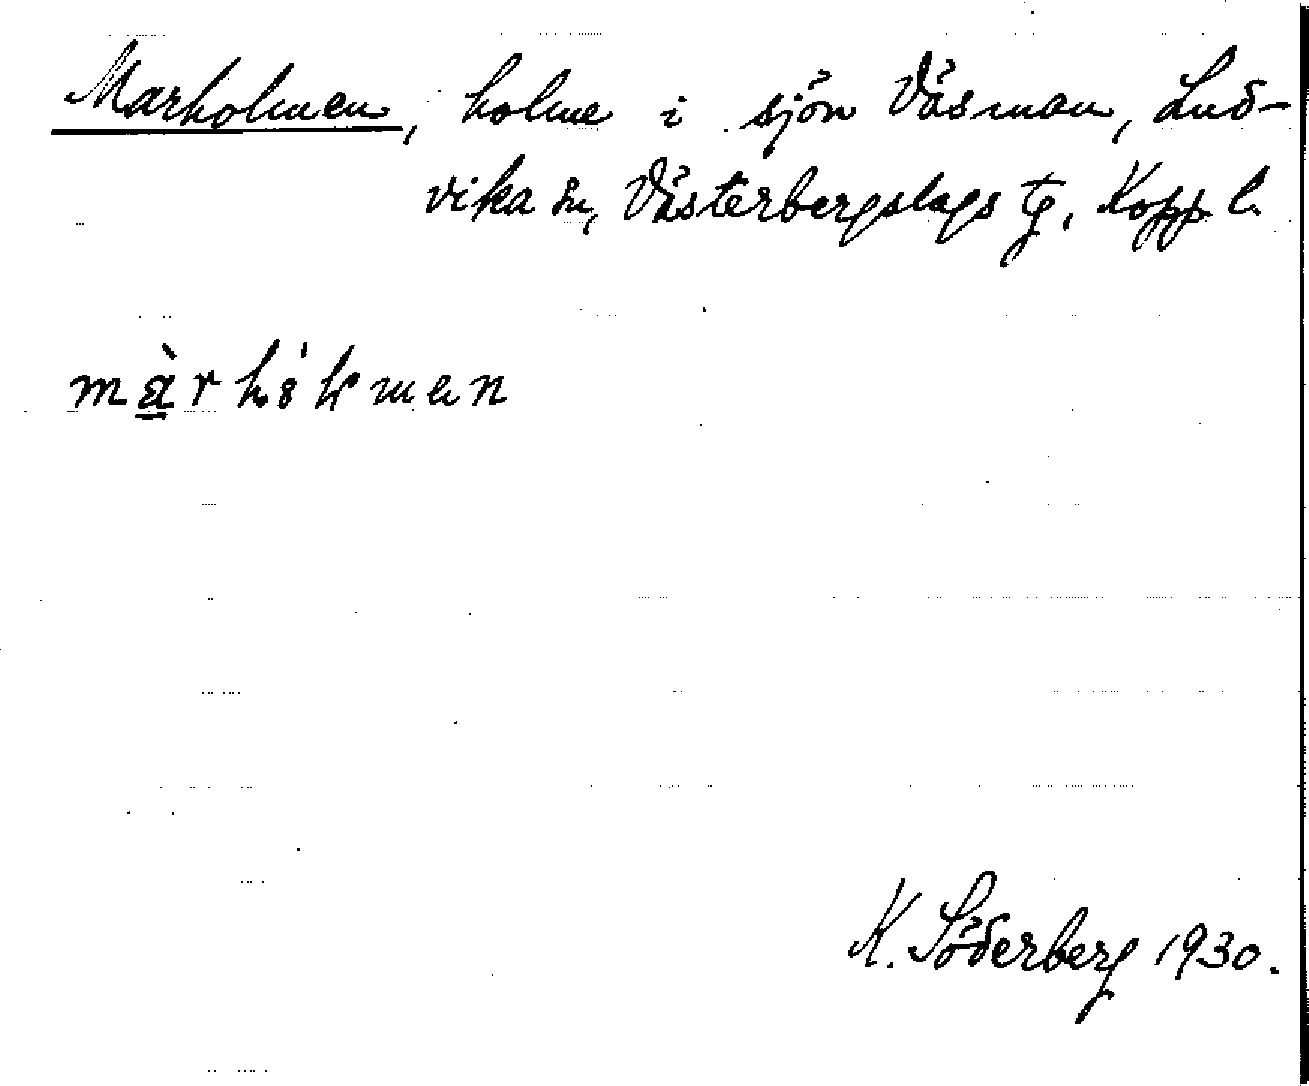 Marholmen, holme i sjön Väsman, Lud-
vika sn, Västerbergslags tg. Kopp. l.
K. Söderberg 1930.